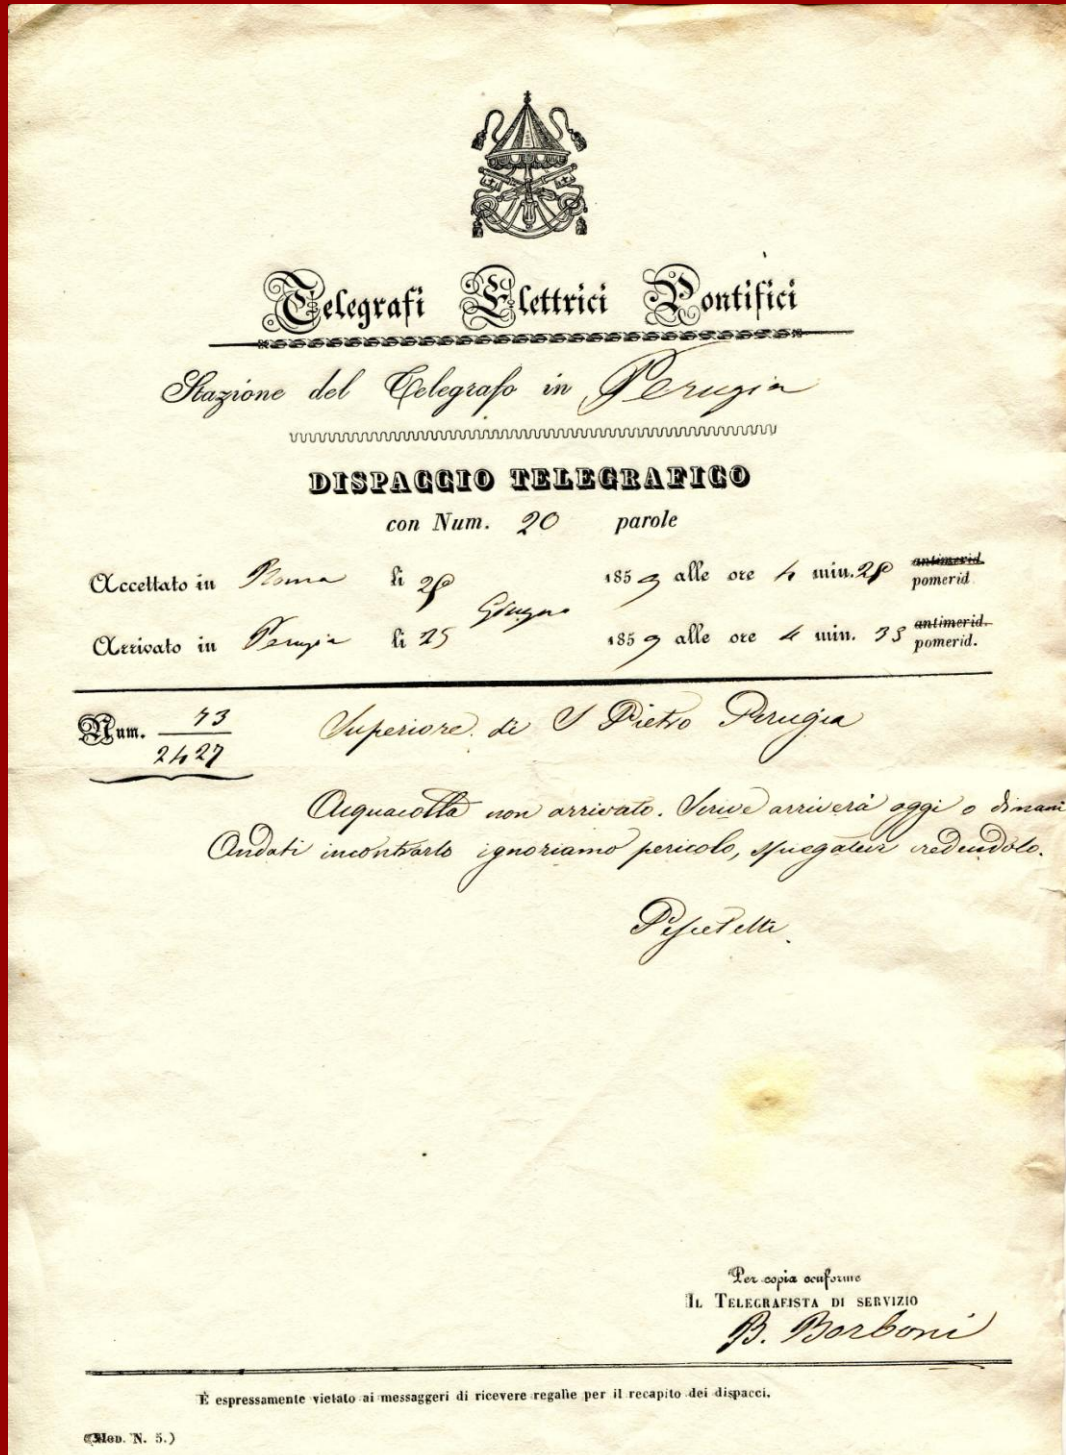 Telegrafi Elettrici Pontifici
Stazione del Telegrafo in Perugia
DISPACCIO TELEGRAFICO
con Num. 20 parole
Accettato in Roma li 1859 alle ore 4 min. 28 antimerid. pomerid.
Giugno
Arrivato in Perugia li 25 1859 alle ore 4 min. 33 antimerid. pomerid.
Num. 73
2427
Superiore di S Pietro Perugia
Acquacotta non arrivato. Scrive arriverà oggi o
Andati incontrarlo ignoriamo pericolo, vedendolo.
Per copia conforme
IL TELEGRAFISTA DI SERVIZIO
B. Borboni
È espressamente vietato ai messaggeri di ricevere regalie per il recapito dei dispacci.
(MOD. N. 5.)